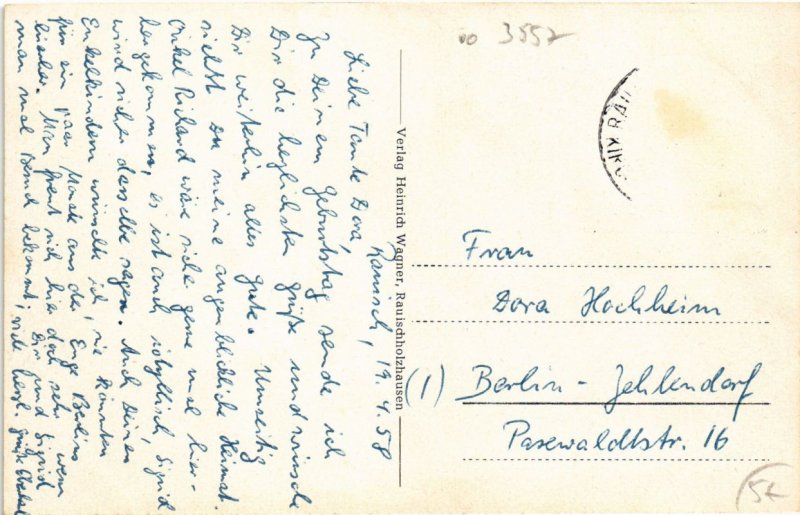 Rauisch, 19.4.58
Liebe Tante Dora
Zu Deinem Geburtstag sende ich
Dir die herzlichsten Grüße und wünsche
Dir weiterhin alles Gute. Umseitig
siehst Du meine augenblickliche Heimat.
Onkel Richard wäre sicher gerne mal hier-
hergekommen, es ist auch idyllisch, Sigrid
wird sicher dasselbe sagen. Auch Deinen
Enkelkindern wünschte ich, sie könnten
für ein paar Monate aus der Enge Berlins
heraus. Man freut sich hier doch sehr wenn
man mal Besuch bekommt, viele herzl. Grüße
Dir und Sigrid
Verlag Heinrich Wagner, Rauischholzhausen
3557
RAU
KIRC
Frau
Dora Hochheim
(1) Berlin-Zehlendorf
Pasewaldtstr. 16